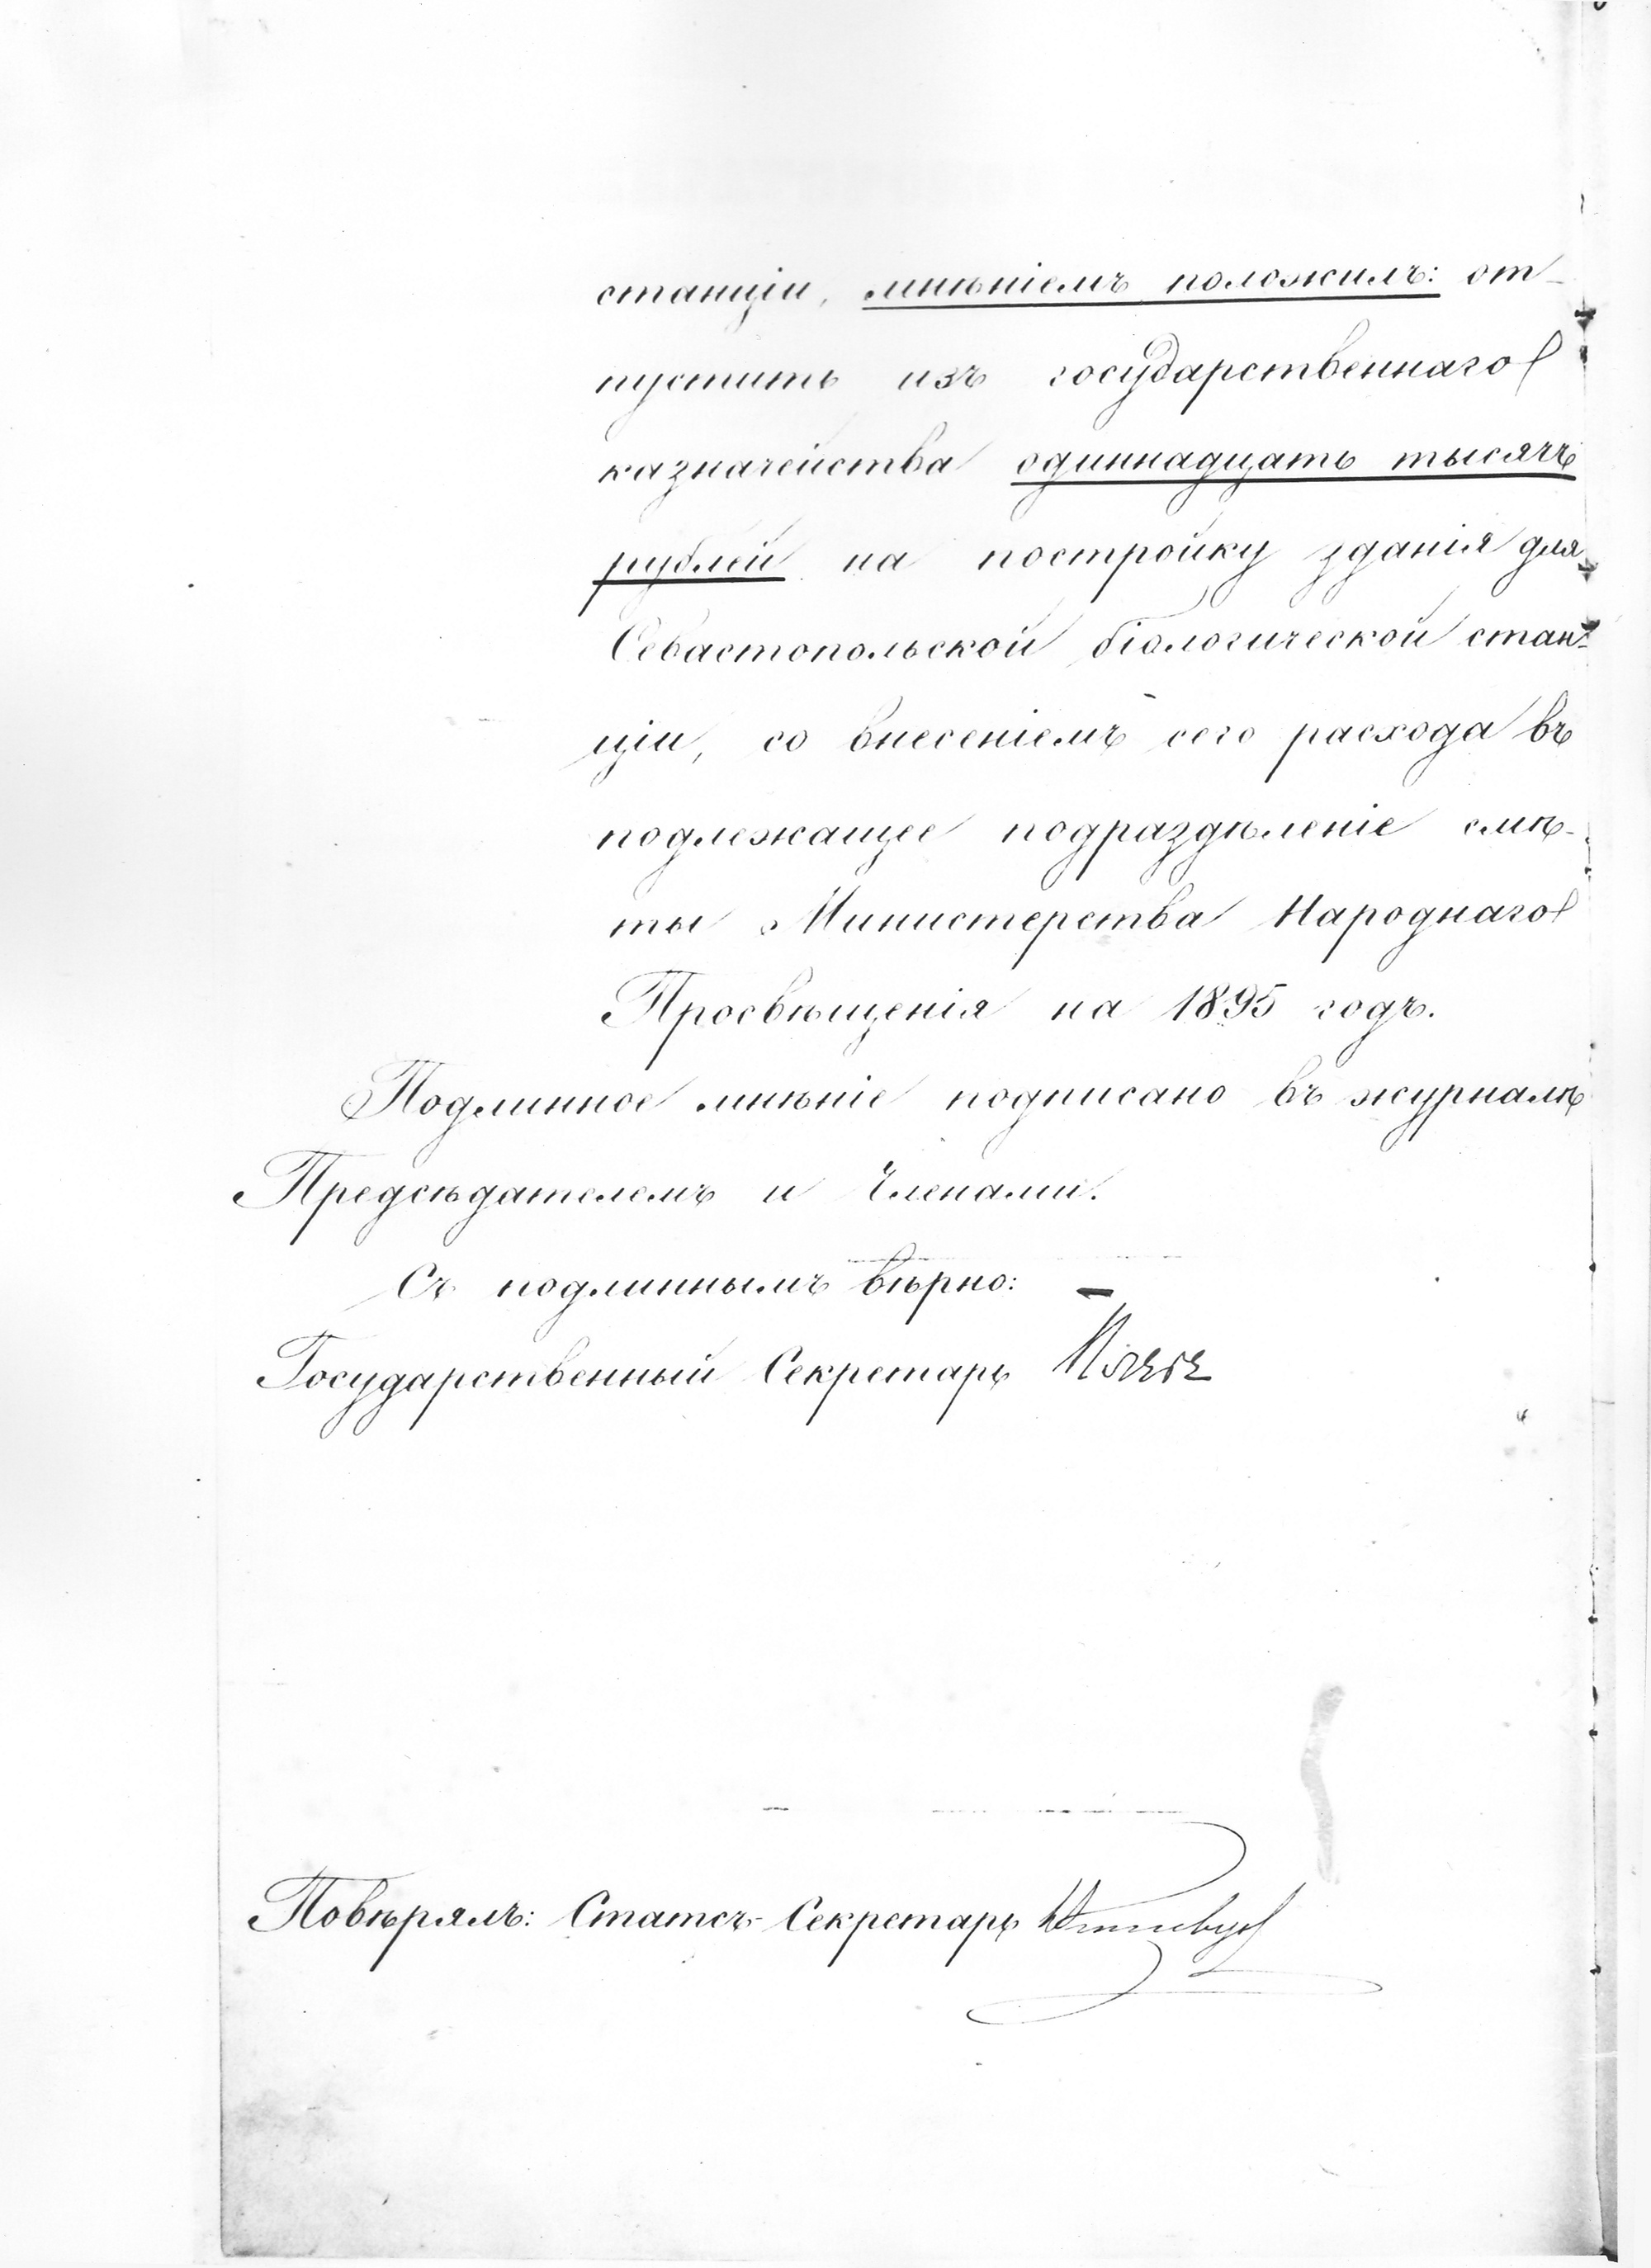 станціи, мнѣніемъ положилъ: от-
пустить изъ государственнаго
казначейства одиннадцать тысячъ
рублей на постройку зданія для
Севастопольской біологической стан-
ціи, со внесеніемъ сего расхода въ
подлежащее подраздѣленіе смѣ-
ты Министерства Народнаго
Просвѣщенія на 1895 годъ.
Подлинное мнѣніе подписано въ журналѣ
Предсѣдателемъ и Членами.
Съ подлиннымъ вѣрно:
Государственный Секретарь
Повѣрялъ: Статсъ-Секретарь